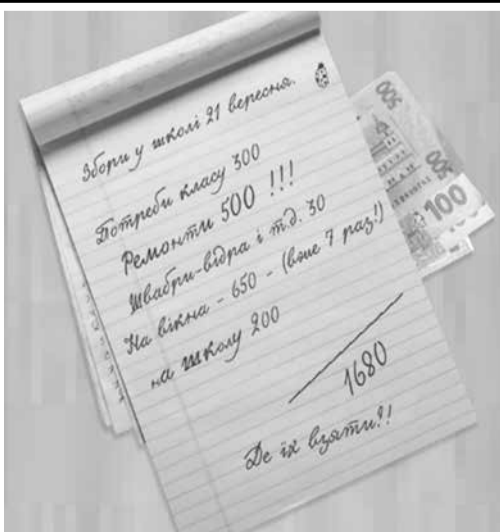 Збори у школі 21 вересня.
Потреби класу 300
Ремонти 500 !!!
Швабри-відра і т.д. 30
На вікна - 650 - (вже 7 раз!)
на школу 200
1680
Де їх взяти?!
100